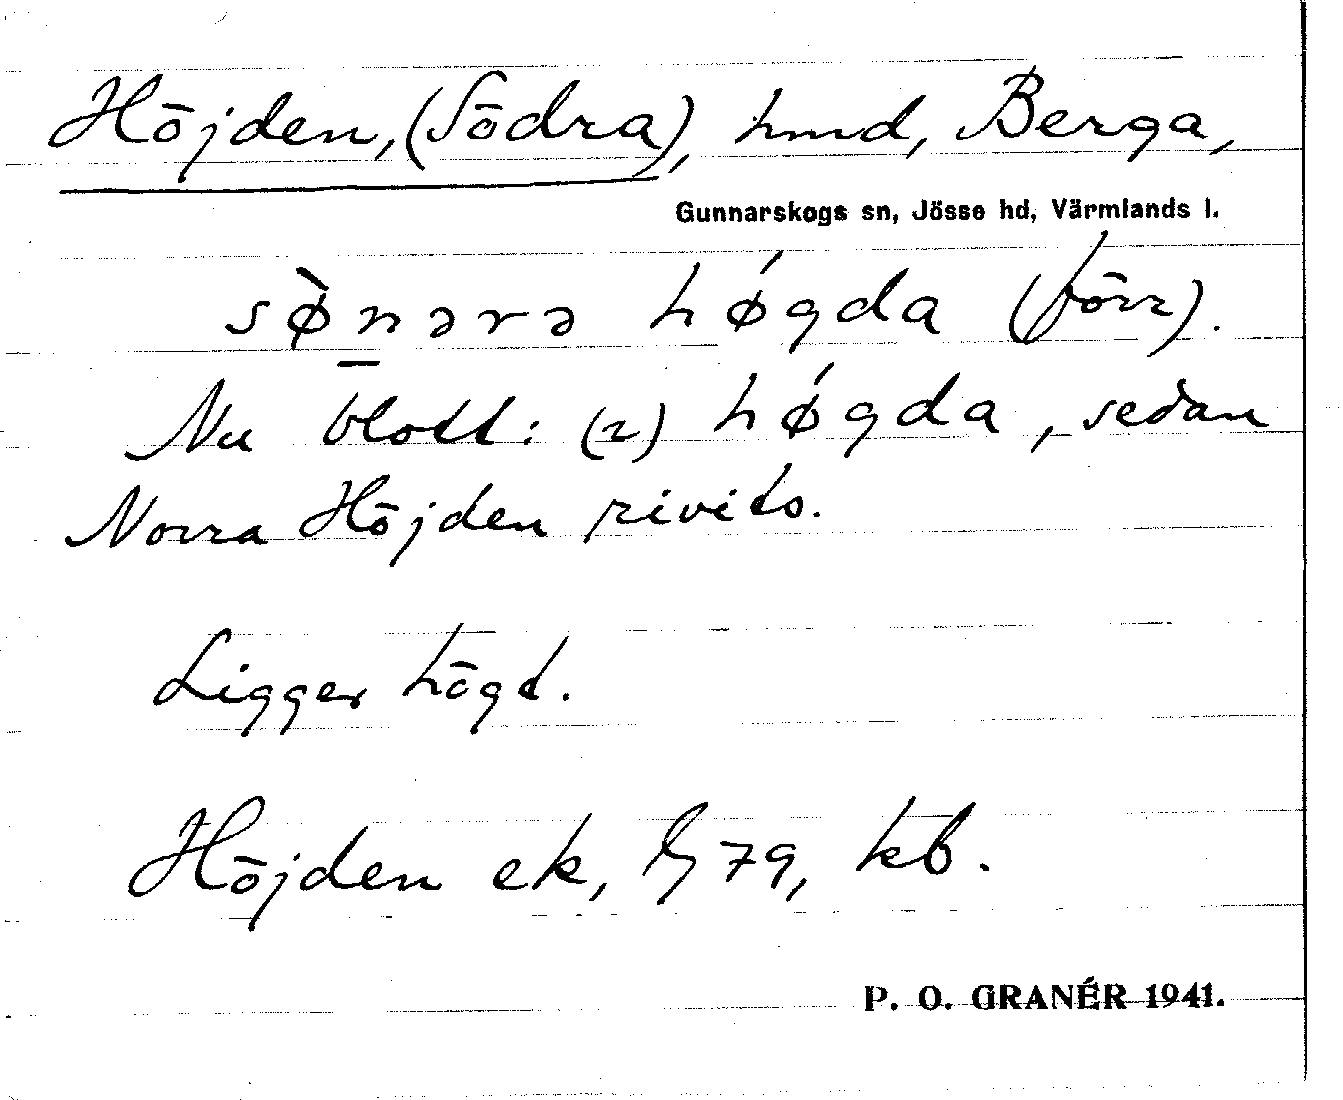 Höjden, (Södra), hmd, Berga,
Gunnarskogs sn, Jösse hd, Värmlands l.
sø̀n̲ərə hǿgda (förr).
Nu blott: (2) hǿgda, sedan
Norra Höjden rivits.
Ligger högt.
Höjden ek, 79, kb.
P. O. GRANÉR 1941.